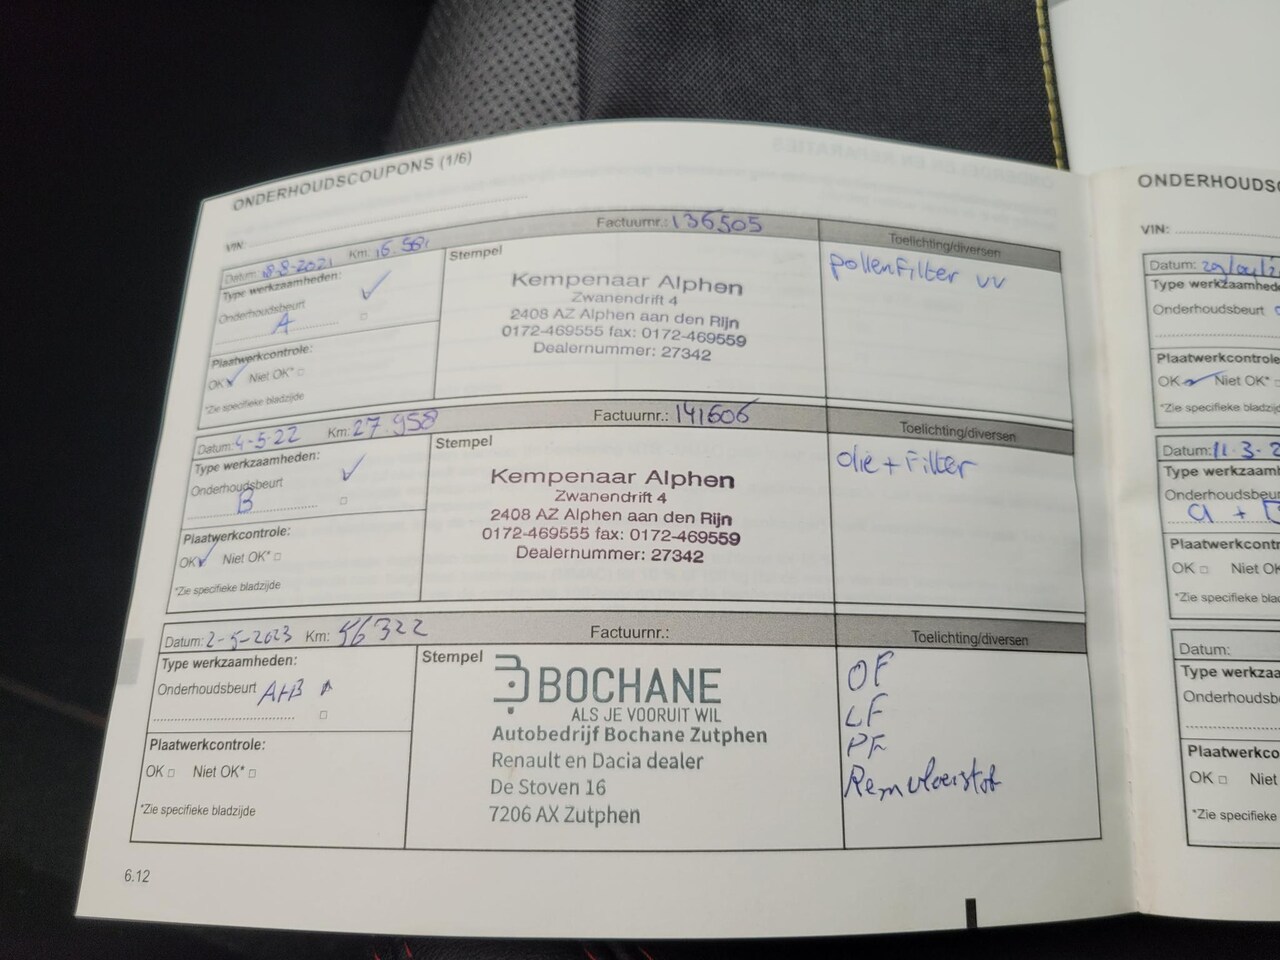 ONDERHOUDSCOUPONS (1/6)
VIN:
Datum: 18-8-2021 Km:
Factuurnr.: 136505
Toelichting/diversen
Type werkzaamheden:
Onderhoudsbeurt ✓
A
Plaatwerkcontrole:
OK ✓ Niet OK* □
*Zie specifieke bladzijde
Stempel
Kempenaar Alphen
Zwanendrift 4
2408 AZ Alphen aan den Rijn
0172-469555 fax: 0172-469559
Dealernummer: 27342
pollenfilter vv
Datum: 4-5-22 Km: 27.958
Factuurnr.: 141606
Toelichting/diversen
Type werkzaamheden:
Onderhoudsbeurt ✓
B □
Plaatwerkcontrole:
OK ✓ Niet OK* □
*Zie specifieke bladzijde
Stempel
Kempenaar Alphen
Zwanendrift 4
2408 AZ Alphen aan den Rijn
0172-469555 fax: 0172-469559
Dealernummer: 27342
olie + Filter
Datum: 2-5-2023 Km: 56322
Factuurnr.:
Toelichting/diversen
Type werkzaamheden:
Onderhoudsbeurt A+B
□
Plaatwerkcontrole:
OK □ Niet OK* □
*Zie specifieke bladzijde
Stempel
BOCHANE
ALS JE VOORUIT WIL
Autobedrijf Bochane Zutphen
Renault en Dacia dealer
De Stoven 16
7206 AX Zutphen
OF
LF
PF
Remvloeistof
6.12
VIN:
Datum:
Type
Onderhoudsbeurt
Plaatwerkcontrole
OK ✓ Niet OK*
*Zie specifieke
Datum: 11-3-2
Type
a +
OK □ Niet
*Zie specifieke
Datum:
Type
OK □ Niet
*Zie specifieke